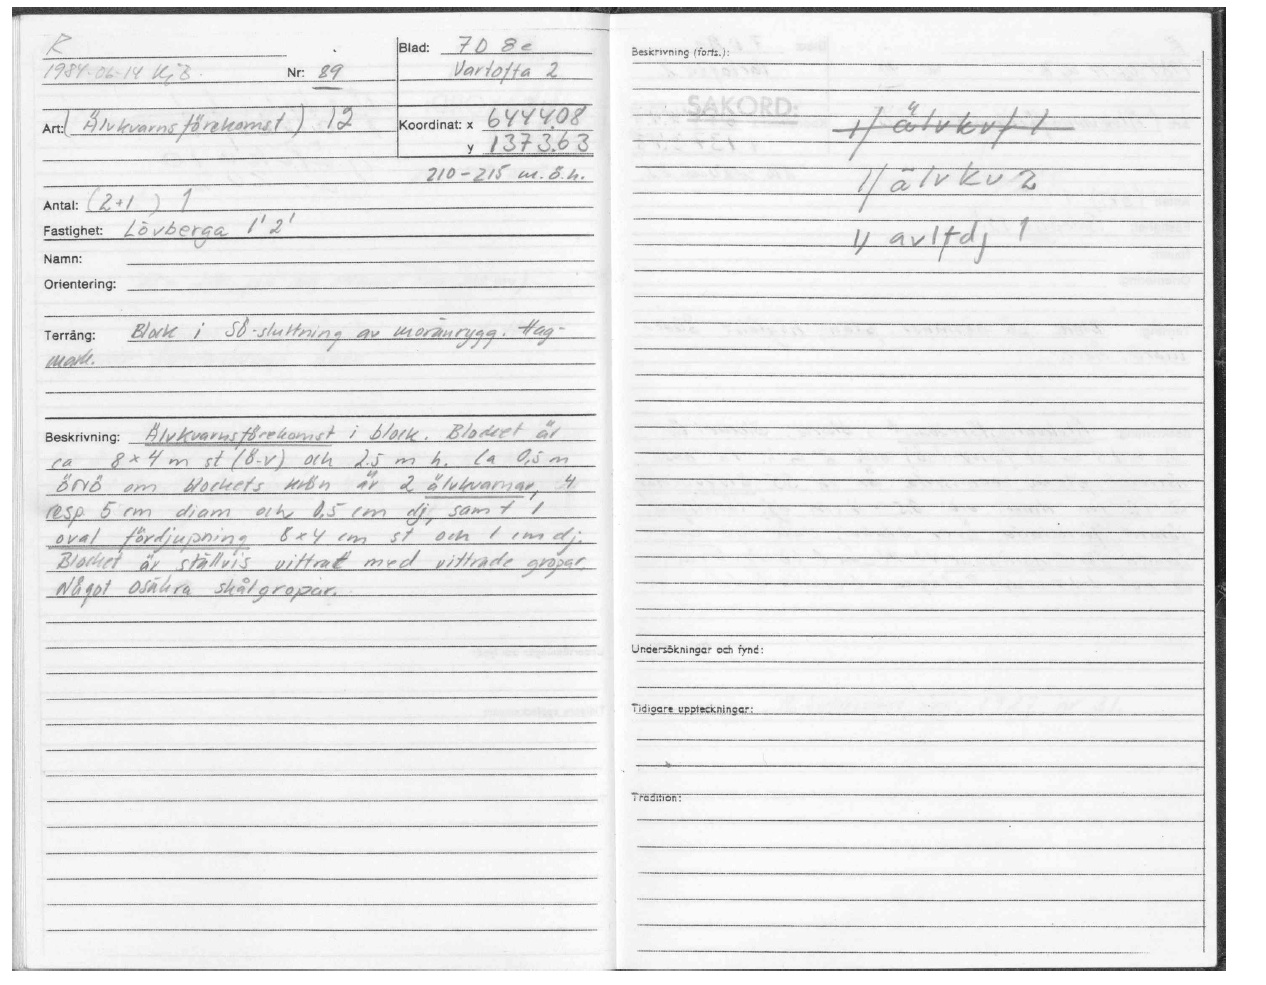 R
1984-06-14 KjB.
Nr: 89
Blad: 7D 8e
Vartofta 2
Art: (Älvkvarnsförekomst) 12
Koordinat: x 6444.08
y 1373.63
210-215 m.ö.h.
Antal: (2+1) 1
Fastighet: Lövberga 1'2'
Namn:
Orientering:
Terräng: Block i SÖ-sluttning av moränrygg. Hag-
mark.
Beskrivning: Älvkvarnsförekomst i block. Blocket är
ca 8×4 m st (Ö-V) och 2.5 m h. Ca 0,5 m
ÖNÖ om blockets krön är 2 älvkvarnar, 4
resp 5 cm diam och 0.5 cm dj, samt 1
oval fördjupning 8×4 cm st och 1 cm dj.
Blocket är ställvis vittrat med vittrade gropar.
Något osäkra skålgropar.
Beskrivning (forts.):
SAKORD:
1/ älvkvf 1
1/ älvkv 2
1/ avlfdj 1
Undersökningar och fynd:
Tidigare uppteckningar:
Tradition: